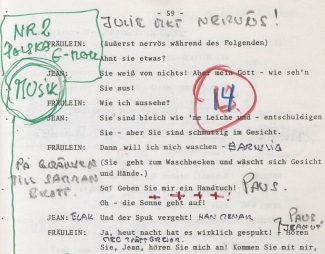 - 59 -
JULIE MKT NERVÖS!
NR 2
POLSKA
G-MOLL
MUSIK
FRÄULEIN: (äußerst nervös während des Folgenden)
Ahnt sie etwas?
JEAN: Sie weiß von nichts! Aber mein Gott - wie seh'n
Sie aus!
FRÄULEIN: Wie ich aussehe?
14
JEAN: Sie sind bleich wie 'ne Leiche und - entschuldigen
Sie - aber Sie sind schmutzig im Gesicht.
FRÄULEIN: Dann will ich mich waschen -
PÅ GRÄNSEN
TILL
(Sie geht zum Waschbecken und wäscht sich Gesicht
und Hände.)
So! Geben Sie mir ein Handtuch! PAUS.
Oh - die Sonne geht auf!
JEAN: ELAK Und der Spuk vergeht!
PAUS
FRÄULEIN: Ja, heut nacht hat es wirklich gespukt! Hören
Sie, Jean, hören Sie mich an! Kommen Sie mit mir,